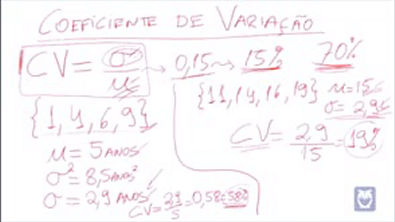 COEFICIENTE DE VARIAÇÃO
CV = σ/μ → 0,15 → 15% 70%
{1, 4, 6, 9}
μ = 5 ANOS
σ² = 8,5 ANOS²
σ = 2,9 ANOS
CV = 2,9/5 = 0,58 = 58%
{11, 14, 16, 19} μ = 15
σ = 2,9
CV = 2,9/15 = 19%